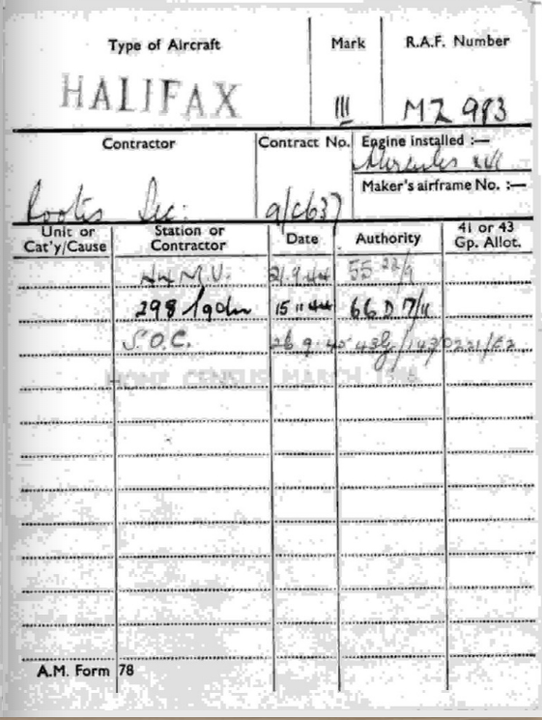 Type of Aircraft
Mark
R.A.F. Number
HALIFAX
III
MZ 983
Contractor
Contract No.
Engine installed :—
Hercules XVI
Maker's airframe No. :—
Rootes Sec:
a/c637
Unit or Cat'y/Cause
Station or Contractor
Date
Authority
41 or 43 Gp. Allot.
44 M.U. 21.9.44 55 22/9
298 Sqdn 15 11 44 66 D 7/11
S.O.C. 26 9.45 43g/
HOME CENSUS MARCH 1946
A.M. Form 78